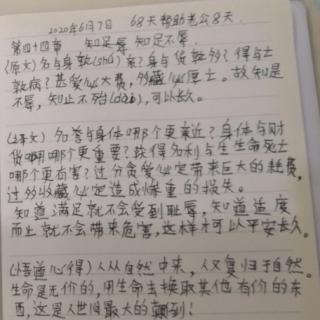 2020年6月7日 68天帮助老公8天.
第四十四章 知足辱 知足不辱.
(原文)名与身孰(shú)亲?身与货孰多?得与亡
孰病?甚爱必大费,多藏必厚亡。故知足
不辱,知止不殆(dài),可以长久。
(译文)名誉与身体哪个更亲近?身体与财
货哪个更重要?获得名利与生命死亡
哪个更有害?过分贪爱必定带来巨大的耗费,
过多收藏必定造成惨重的损失。
知道满足就不会受到耻辱,知道适度
而止就不会带来危害,这样才可以平安长久。
(悟道心得)人从自然中来,人又复归于自然。
生命是无价的,用生命去换取其他有价的东
西,这是人世间最大的颠倒!